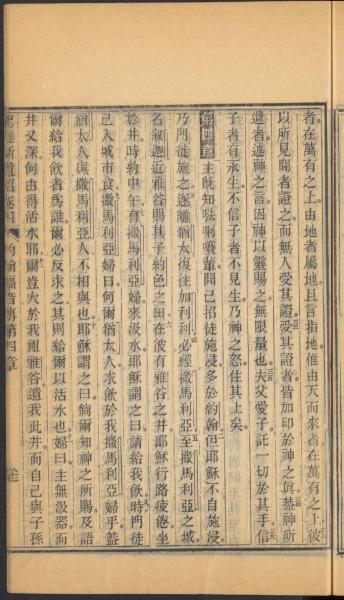 者在萬有之上由地者屬地且言指地惟由天而來者在萬有之上彼
以所見聞者證之而無人受其證受其證者皆加印於神之眞蓋神所
遣者述神之言因神以靈賜之無限量也夫父愛子託一切於其手信
子者有永生不信子者不見生乃神之怒住其上矣
第四章 主既知𠵽唎㘔黨聞己招徒施浸多於約翰但耶穌不自施浸
乃門徒施之遂離猶太復往加利利必經撒馬利亞至撒馬利亞之城
名叙迦近雅谷賜其子約色之田在彼有雅谷之井耶穌行路疲倦坐
於井時約中午有撒馬利亞婦來汲水耶穌謂之曰請給我飲時門徒
已入城市食撒馬利亞婦曰何爾猶太人求飲於我撒馬利亞婦乎蓋
猶太人與撒馬利亞人不相與也耶穌謂之曰倘爾知神之所賜及語
爾給我飲者爲誰爾必反求之其則給爾以活水也婦曰主無汲器而
井又深何由得活水耶爾豈大於我祖雅谷遺我此井而自己與子孫
約翰福音傳第四章